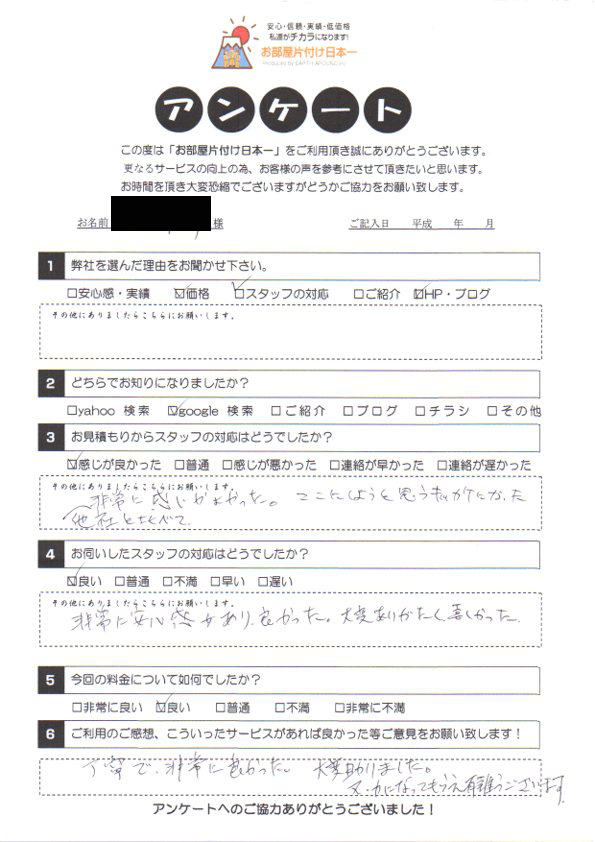 安心・信頼・実績・低価格
私達がチカラになります!
お部屋片付け日本一
アンケート
この度は「お部屋片付け日本一」をご利用頂き誠にありがとうございます。
更なるサービスの向上の為、お客様の声を参考にさせて頂きたいと思います。
お時間を頂き大変恐縮でございますがどうかご協力をお願い致します。
お名前 様 ご記入日 平成 年 月
1 弊社を選んだ理由をお聞かせ下さい。
□安心感・実績 ☑価格 ☑スタッフの対応 □ご紹介 ☑HP・ブログ
その他にありましたらこちらにお願いします。
2 どちらでお知りになりましたか?
□yahoo 検索 ☑google 検索 □ご紹介 □ブログ □チラシ □その他
3 お見積もりからスタッフの対応はどうでしたか?
☑感じが良かった □普通 □感じが悪かった □連絡が早かった □連絡が遅かった
その他にありましたらこちらにお願いします。
非常に感じがよかった。ここにしようと思うきっかけになった
他社とくらべて
4 お伺いしたスタッフの対応はどうでしたか?
☑良い □普通 □不満 □早い □遅い
その他にありましたらこちらにお願いします。
非常に安心感があり、良かった。大変ありがたく
5 今回の料金について如何でしたか?
□非常に良い ☑良い □普通 □不満 □非常に不満
6 ご利用のご感想、こういったサービスがあれば良かった等ご意見をお願い致します!
丁寧で、非常に良かった。大変助かりました。
力になってもらえ有難うございます
アンケートへのご協力ありがとうございました!